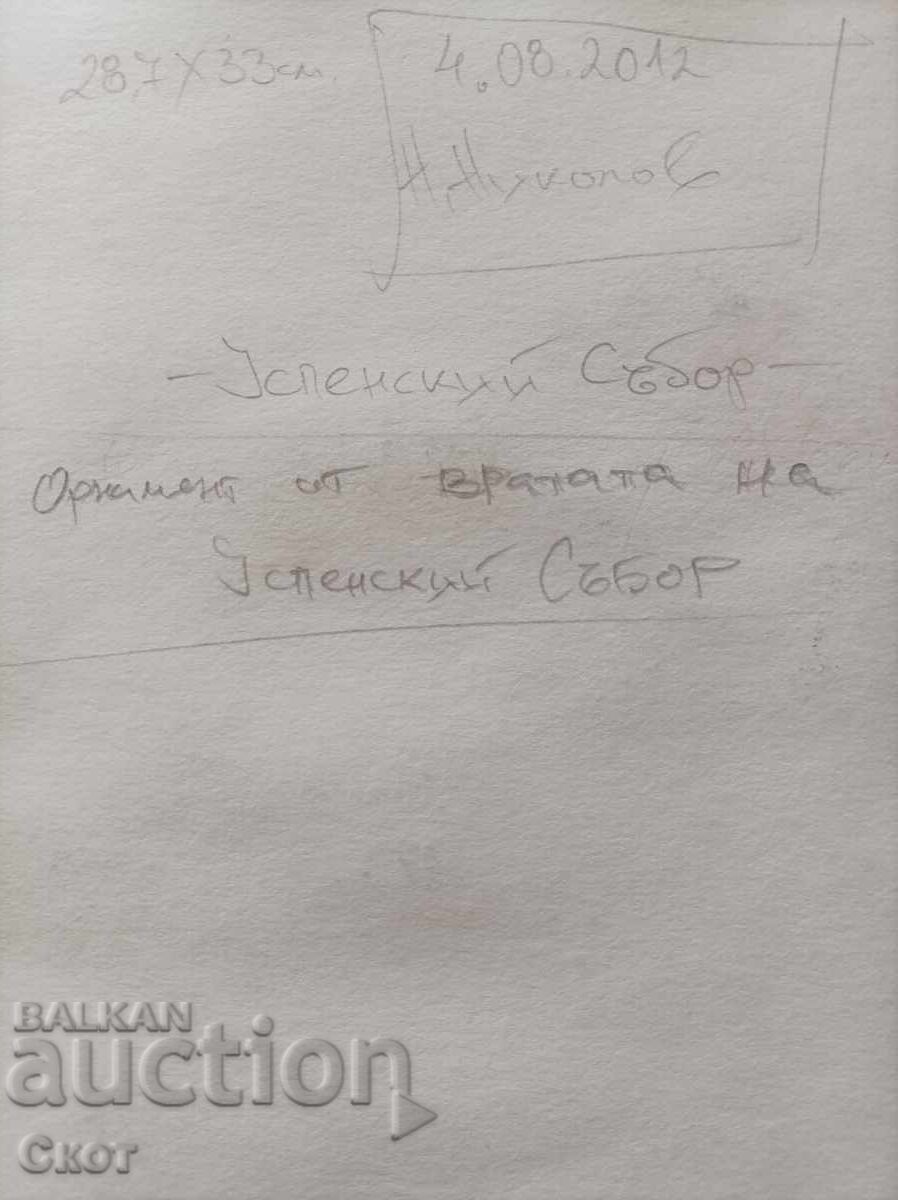 28,7 X 33 см.
4.08.2012
- Успенский Събор -
Орнамент от вратата на
Успенский Събор
BALKAN
auction
Скот